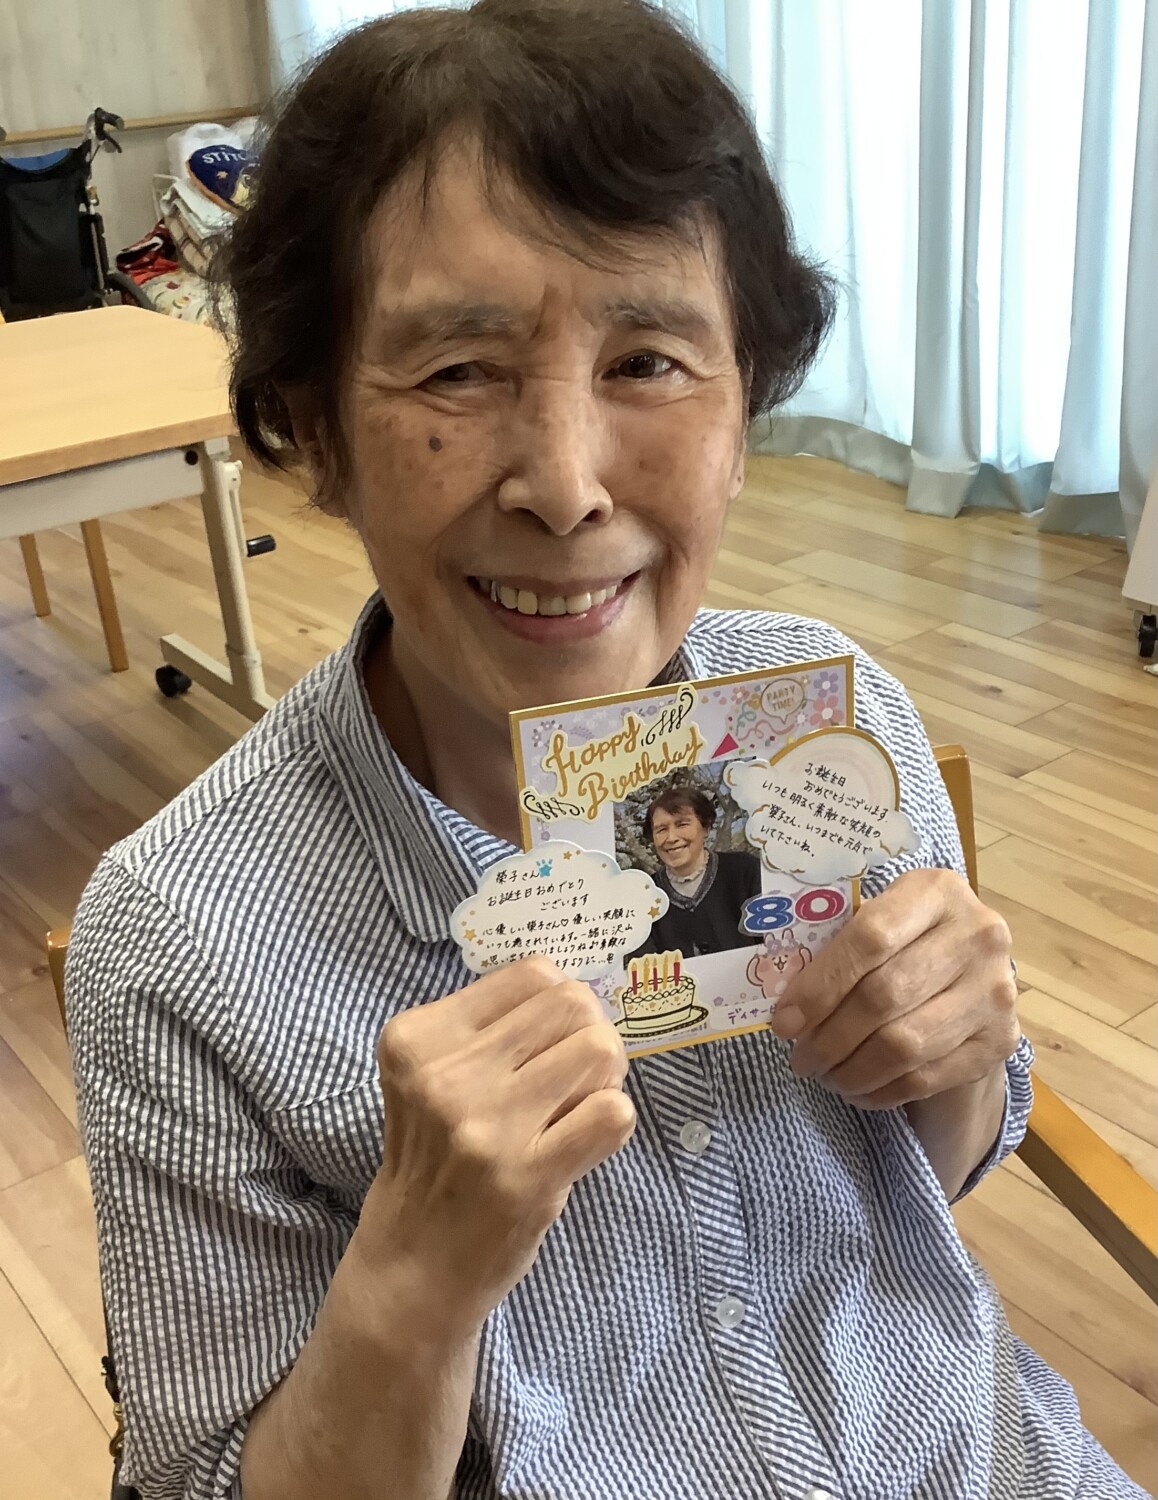 STITCH
Happy
Birthday
PARTY
TIME!
お誕生日
おめでとうございます。
いつも明るく素敵な笑顔の
榮子さん、いつまでも元気で
いて下さいね。
榮子さん
お誕生日おめでとう
ございます
心優しい榮子さん♡優しい笑顔に
いつも癒されています。一緒に沢山
思い出を作りましょうね
80
デイサービ